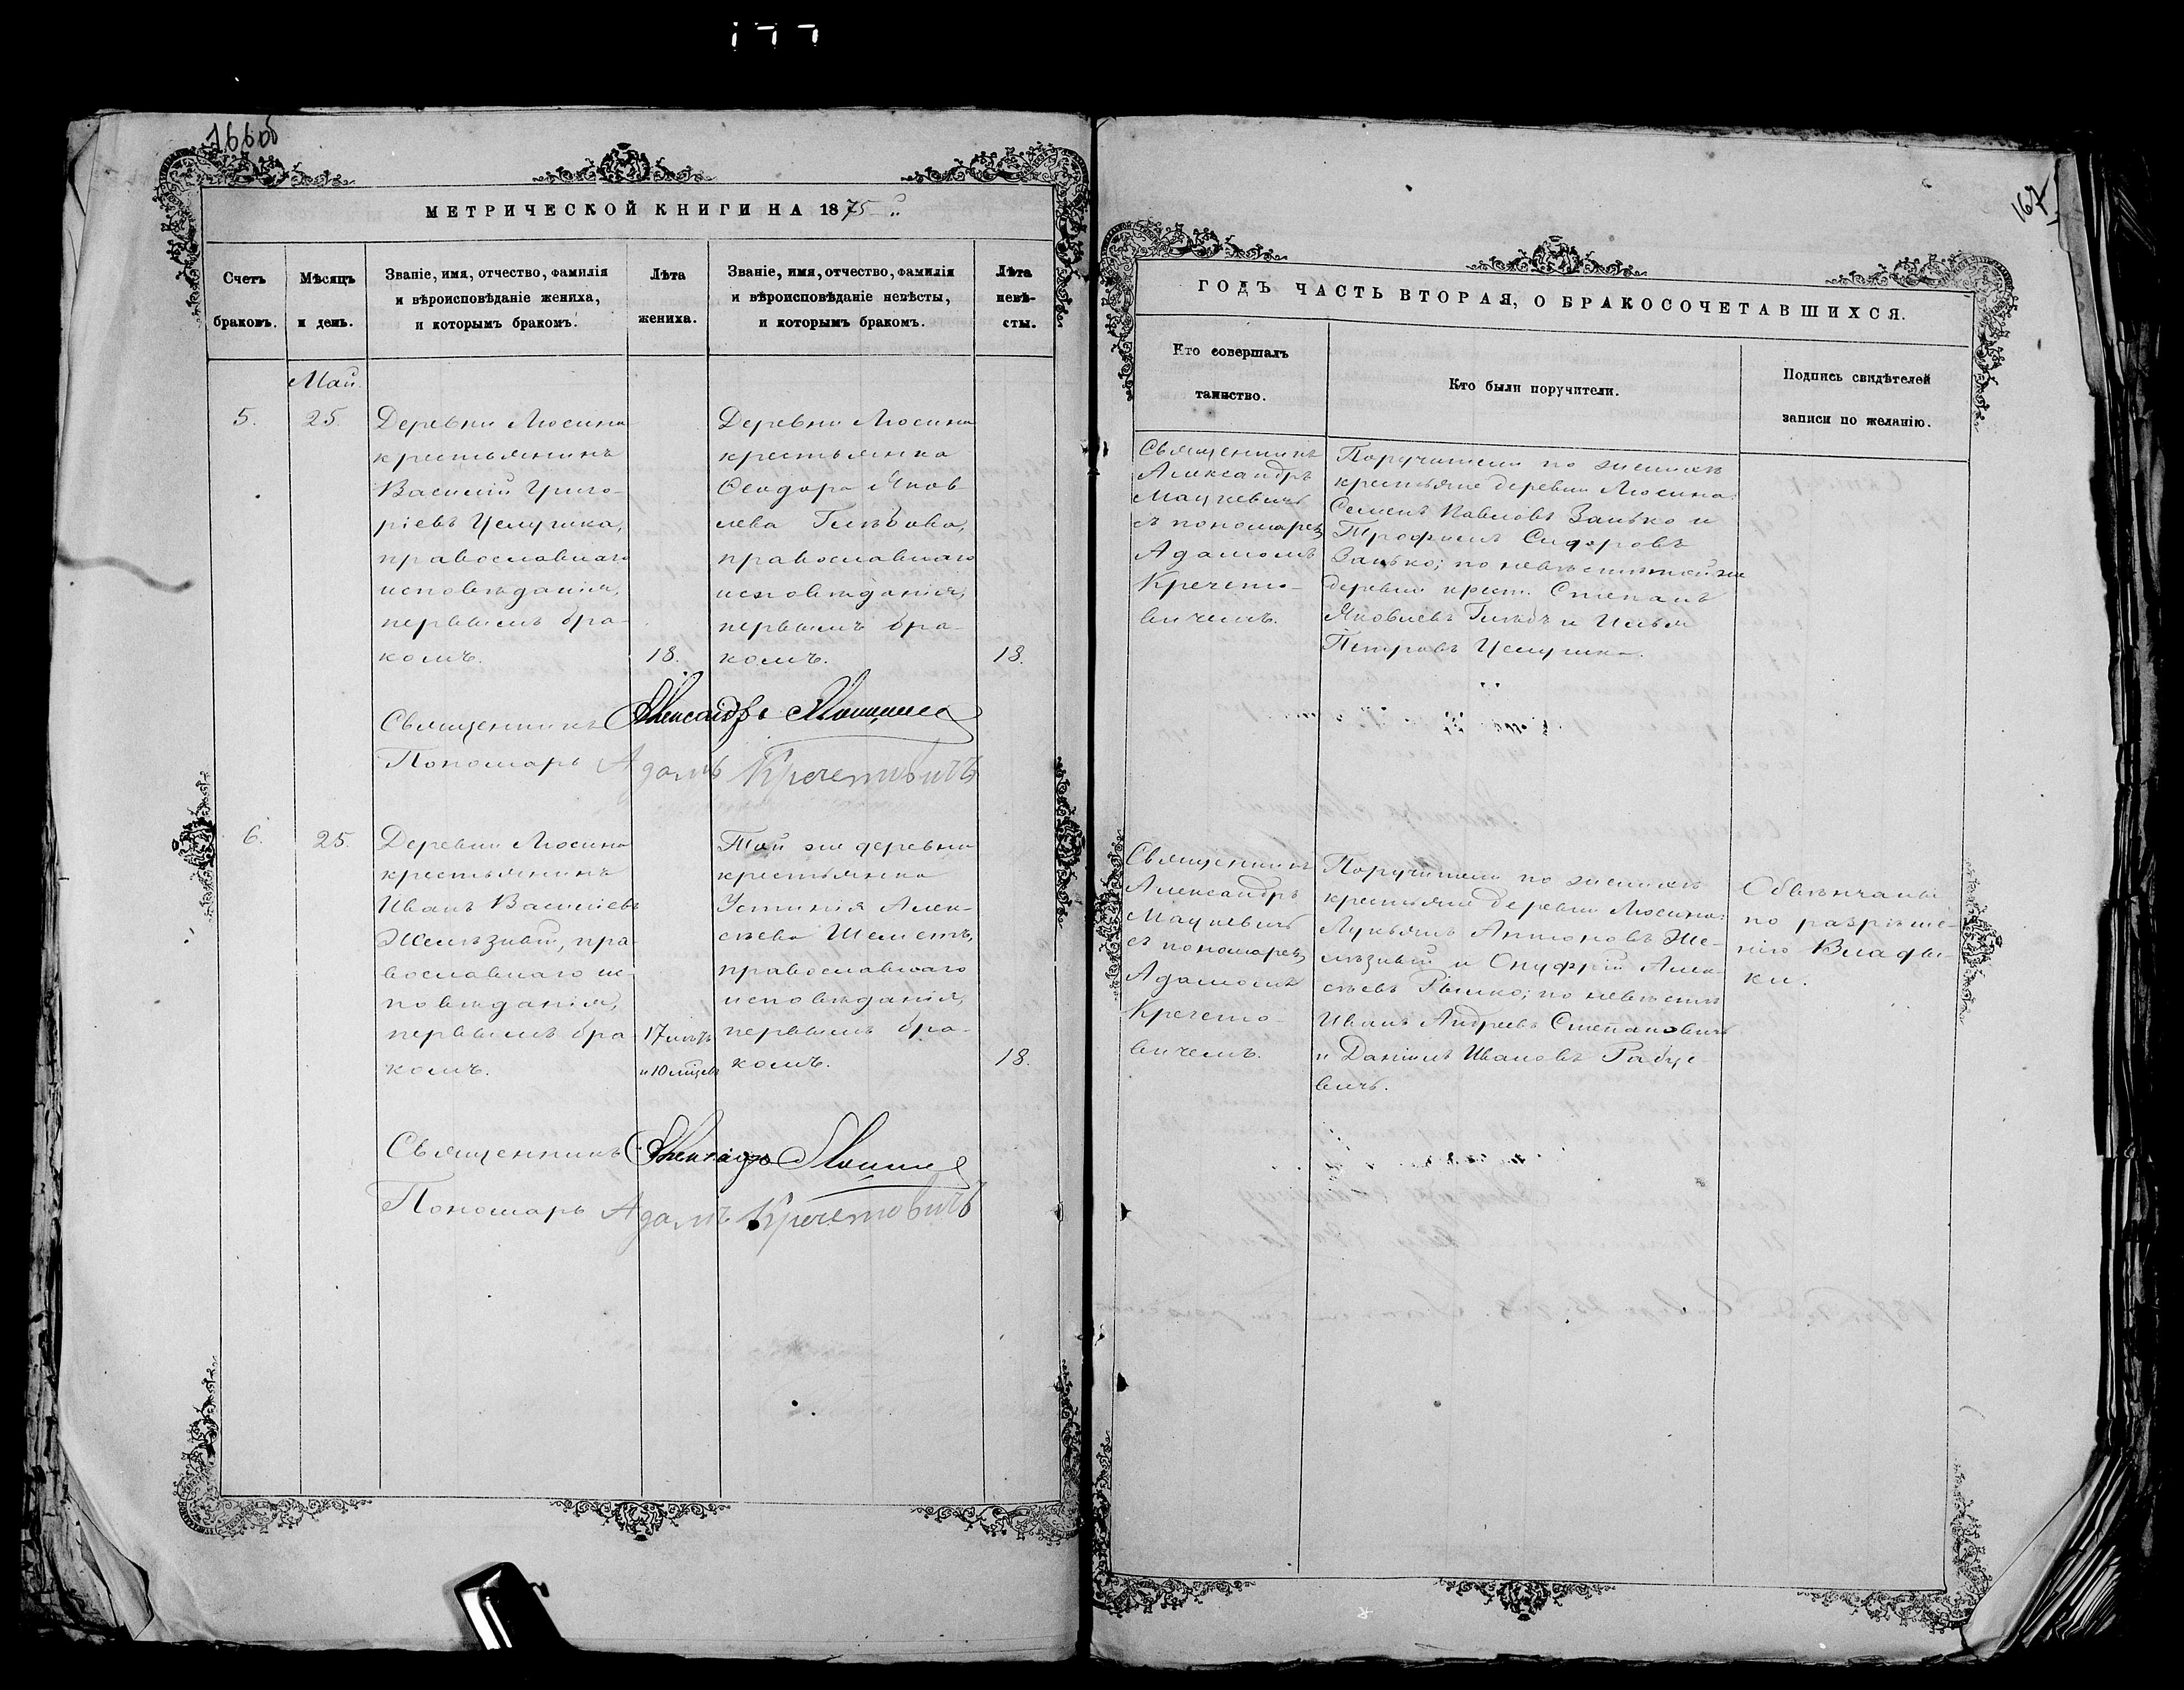 166об
МЕТРИЧЕСКОЙ КНИГИ НА 1875 й
Счетъ браковъ.
Мѣсяцъ и день.
Званіе, имя, отчество, фамилія
и вѣроисповѣданіе жениха,
и которымъ бракомъ.
Лѣта
жениха.
Званіе, имя, отчество, фамилія
и вѣроисповѣданіе невѣсты,
и которымъ бракомъ.
Лѣта
невѣ-
сты.
Май.
5.
25.
Деревни Люсина
крестьянинъ
Василій Григо-
ріевъ Целушка,
православнаго
исповѣданія,
первымъ бра-
комъ.
18.
Деревни Люсина
крестьянка
Ѳеодора Яков
лева
православнаго
исповѣданія,
первымъ бра-
комъ.
18.
Священникъ Александръ
Пономарь Адамъ Кречетовичъ
6.
25.
Деревни Люсина
крестьянинъ
Иванъ Василіевъ
Желѣзный, пра
вославнаго ис-
повѣданія,
первымъ бра
комъ.
17 лѣтъ
и 10 мѣсцев
Той же деревни
крестьянка
Устинія Алек-
сѣева Шеметъ,
православнаго
исповѣданія,
первымъ бра-
комъ.
18.
Священникъ Александръ
Пономарь Адамъ Кречетовичъ
167
ГОДЪ ЧАСТЬ ВТОРАЯ, О БРАКОСОЧЕТАВШИХСЯ.
Кто совершалъ
таинство.
Кто были поручители.
Подпись свидѣтелей
записи по желанію.
Священникъ
Александръ
Мацкевичъ
съ пономарем
Адамомъ
Кречето-
вичемъ.
Поручители по женихѣ
крестьяне деревни Люсина:
Семенъ Павловъ Занько и
Трофимъ Сидоровъ
Занько; по невѣстѣ той же
деревни крест. Степанъ
Яковлевъ и Илья
Петровъ Целушка.
Священникъ
Александръ
Мацкевичъ
съ пономарем
Адамомъ
Кречето-
вичемъ.
Поручители по женихѣ
крестьяне деревни Люсина:
Лукьянъ Антоновъ Же-
лѣзный и Онуфрій Алек-
сѣевъ Рымко; по невѣстѣ
Иванъ Андреевъ Степановичъ
и Даніилъ Ивановъ Рабце
вичъ.
Обвѣнчаны
по разрѣше-
нію Влады-
ки.